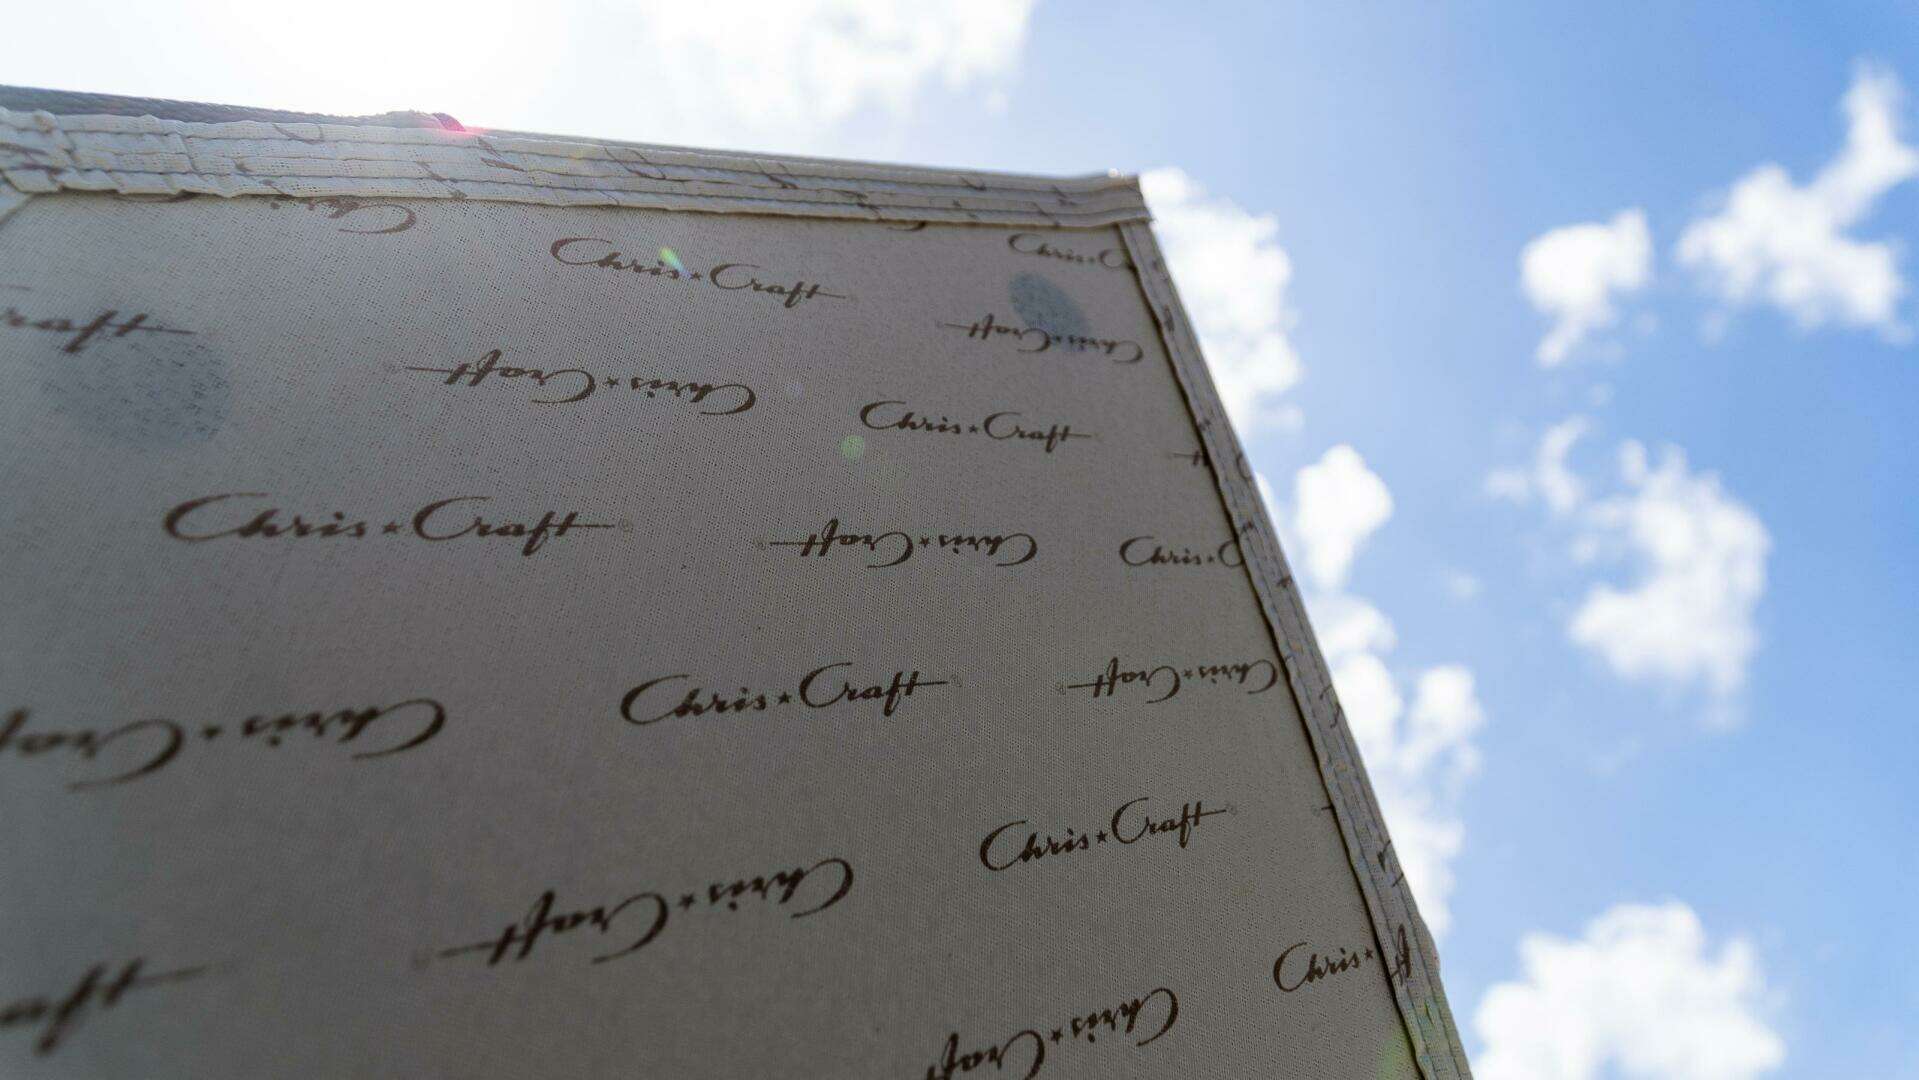 Chris
Chris★Craft
Chris★C
raft
Chris★Craft
Chris★Craft
Chris★Craft
Chris★Craft
Chris★Craft
Chris★C
Chris★Craft
Chris★Craft
Chris★Craft
Chris★Craft
Chris★Craft
Chris★
Chris★Craft